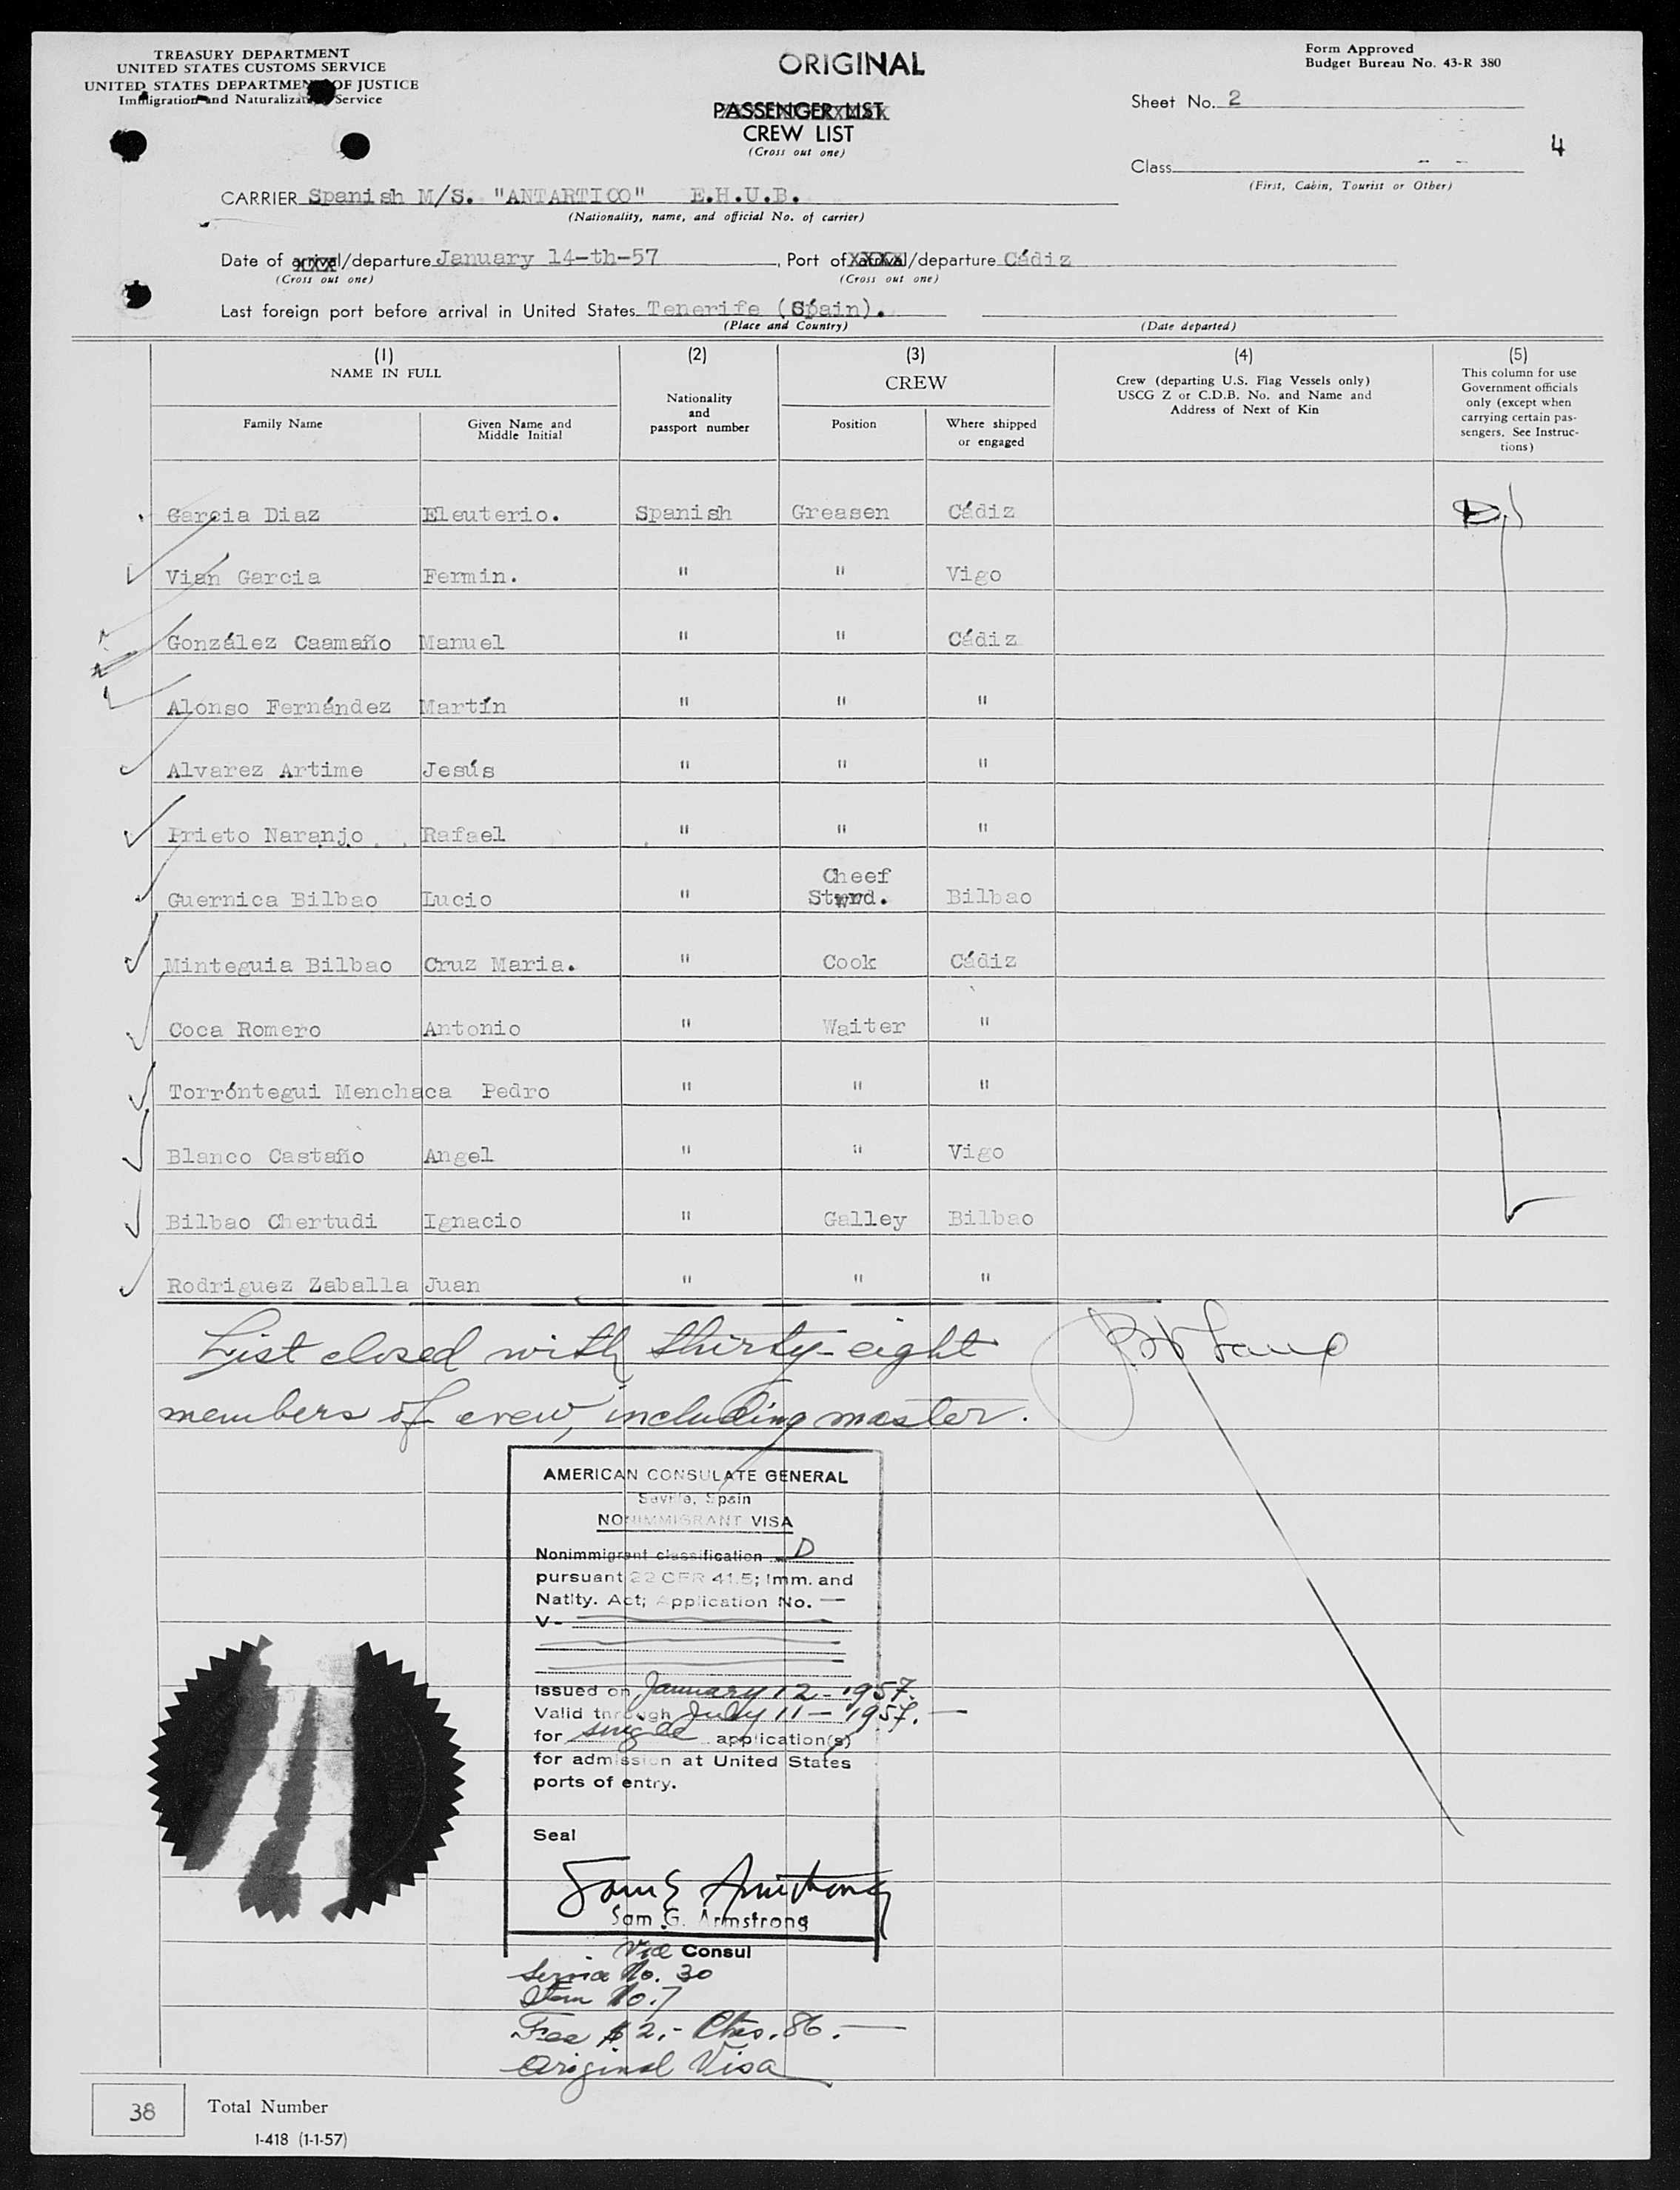 TREASURY DEPARTMENT
UNITED STATES CUSTOMS SERVICE
UNITED STATES DEPARTMENT OF JUSTICE
Immigration and Naturalization Service
ORIGINAL
PASSENGER LIST
CREW LIST
(Cross out one)
Form Approved
Budget Bureau No. 43-R 380
Sheet No. 2
4
Class
(First, Cabin, Tourist or Other)
CARRIER Spanish M/S. "ANTARTICO" E.H.U.B.
(Nationality, name, and official No. of carrier)
Date of arrival/departure January 14-th-57, Port of arrival/departure Cádiz
(Cross out one) (Cross out one)
Last foreign port before arrival in United States Tenerife (Spain).
(Place and Country) (Date departed)
(1) (2) (3) (4) (5)
NAME IN FULL
Family Name
Given Name and
Middle Initial
Nationality
and
passport number
CREW
Position
Where shipped
or engaged
Crew (departing U.S. Flag Vessels only)
USCG Z or C.D.B. No. and Name and
Address of Next of Kin
This column for use
Government officials
only (except when
carrying certain pas-
sengers. See Instruc-
tions)
Garcia Diaz Eleuterio. Spanish Greasen Cádiz D.
Vian Garcia Fermin. " " Vigo
González Caamaño Manuel " " Cádiz
Alonso Fernández Martín " " "
Alvarez Artime Jesús " " "
Prieto Naranjo Rafael " " "
Cheef
Guernica Bilbao Lucio " Stwrd. Bilbao
Minteguia Bilbao Cruz Maria. " Cook Cádiz
Coca Romero Antonio " Waiter "
Torróntegui Menchaca Pedro " " "
Blanco Castaño Angel " " Vigo
Bilbao Chertudi Ignacio " Galley Bilbao
Rodriguez Zaballa Juan " " "
List closed with thirty-eight
members of crew, including master.
AMERICAN CONSULATE GENERAL
Seville, Spain
NONIMMIGRANT VISA
Nonimmigrant classification D
pursuant 22 CFR 41.5; Imm. and
Natlty. Act; Application No. —
V-
Issued on January 12-1957.
Valid through July 11-1957.—
for single application(s)
for admission at United States
ports of entry.
Seal
Sam G. Armstrong
Sam G. Armstrong
Vice Consul
Service No. 30
Item No. 7
Fee $2.- Ptas. 86.—
Original Visa
38 Total Number
I-418 (1-1-57)